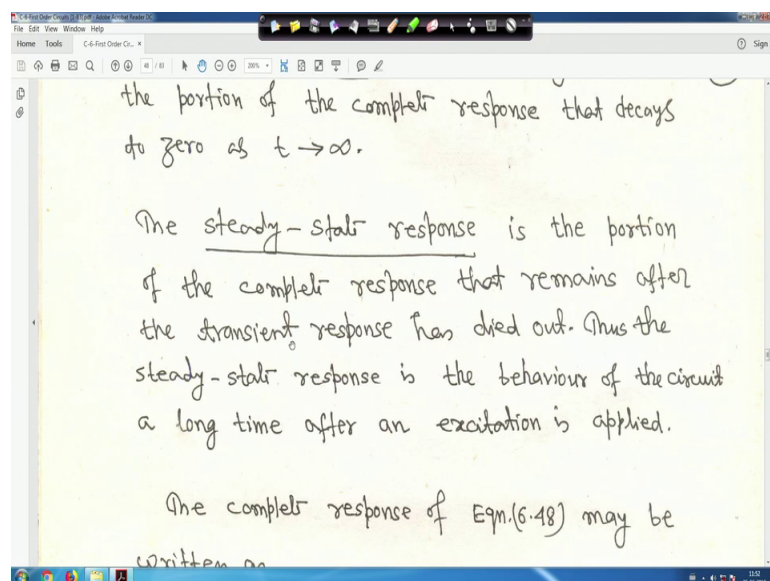 C-6-First Order Circuits (1-83).pdf - Adobe Acrobat Reader DC
File Edit View Window Help
Home Tools C-6-First Order Cir... × Sign
48 / 83 200%
the portion of the complete response that decays
to zero as t → ∞.
The steady-state response is the portion
of the complete response that remains after
the transient response has died out. Thus the
steady-state response is the behaviour of the circuit
a long time after an excitation is applied.
The complete response of Eqn.(6.48) may be
written as
11:52